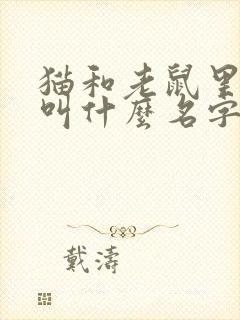 猫和老鼠里
叫什麽名字
戴濤